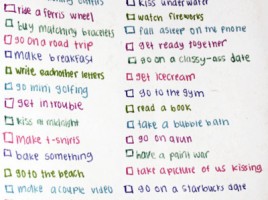 kiss underwater
ride a ferris wheel
buy matching bracelets
go on a road trip
make breakfast
write eachother letters
go mini golfing
get in trouble
kiss at midnight
make t-shirts
bake something
go to the beach
make a couple video
watch fireworks
fall asleep on the phone
get ready together
go on a classy-ass date
get icecream
go to the gym
read a book
take a bubble bath
go on a run
have a paint war
take a picture of us kissing
go on a starbucks date